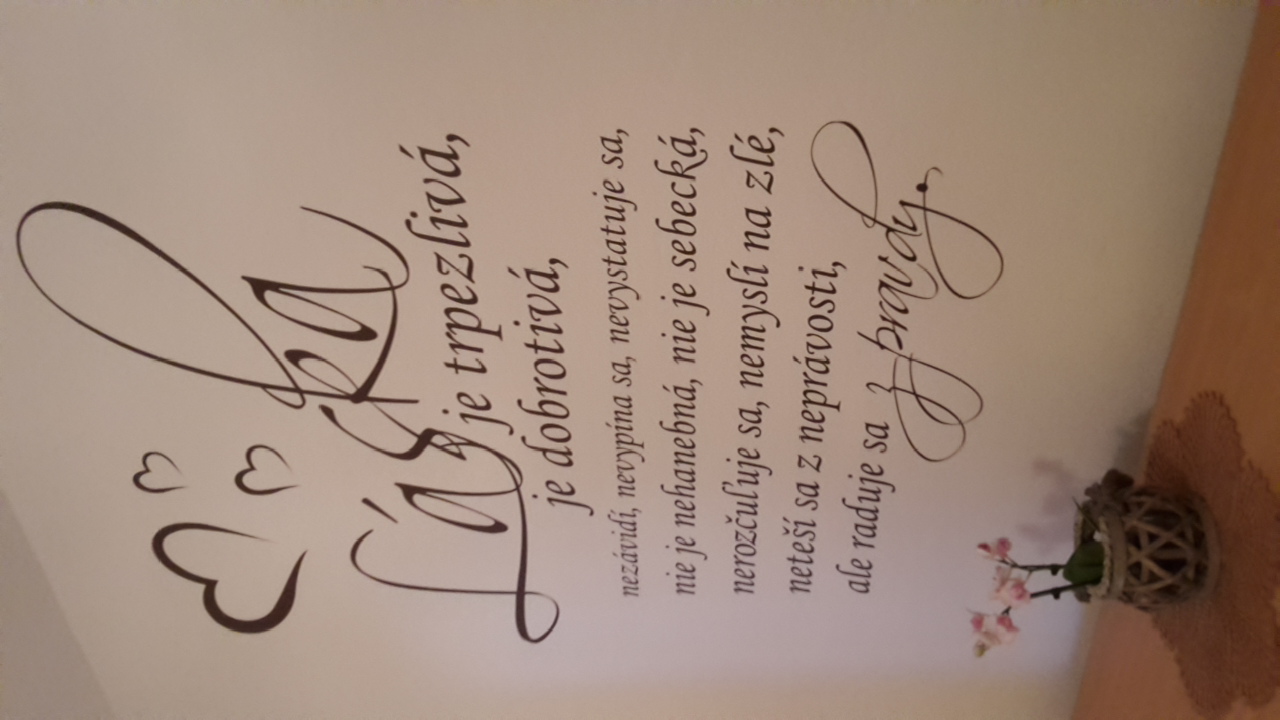 Láska
je trpezlivá,
je dobrotivá,
nezávidí, nevypína sa, nevystatuje sa,
nie je nehanebná, nie je sebecká,
nerozčuľuje sa, nemyslí na zlé,
neteší sa z neprávosti,
ale raduje sa z pravdy.